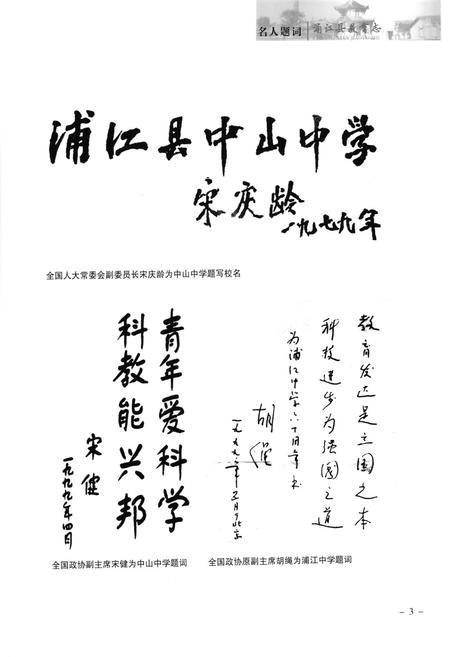 名人题词
浦江县教育志
浦江县中山中学
宋庆龄
一九七九年
全国人大常委会副委员长宋庆龄为中山中学题写校名
青年爱科学
科教能兴邦
宋健
一九九九年四月
全国政协副主席宋健为中山中学题词
教育发达是立国之本
科技进步为强国之道
为浦江中学六十周年书
胡绳
一九九二年五月于北京
全国政协原副主席胡绳为浦江中学题词
- 3 -